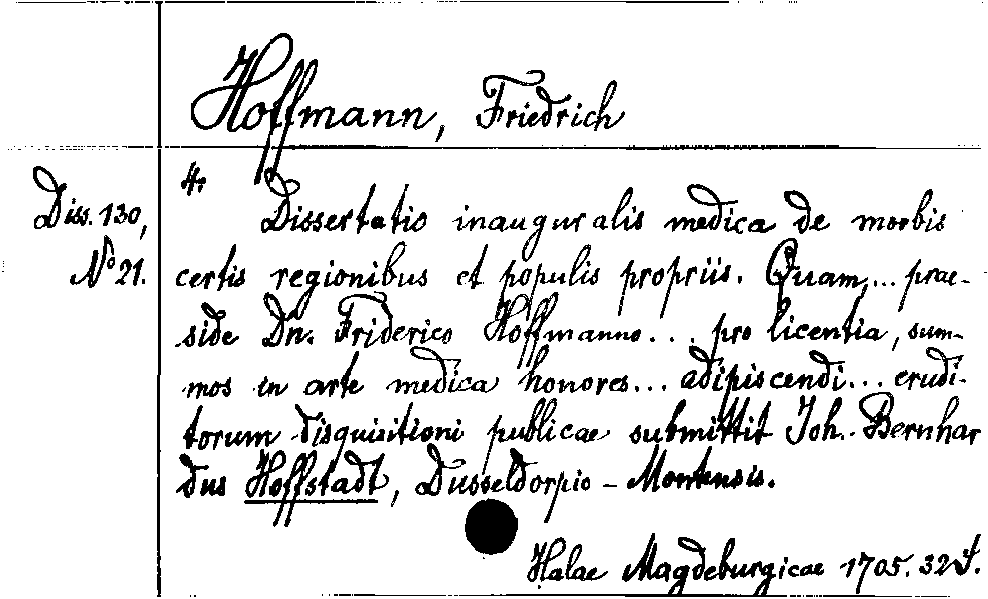 Hoffmann, Friedrich
4,
Diss. 130,
No 21.
Dissertatio inauguralis medica de morbis
certis regionibus et populis propriis. Quam,... prae-
side Dn. Friderico Hoffmanno... pro licentia, sum-
mos in arte medica honores... adipiscendi... erudi-
torum disquisitioni publicae submittit Joh. Bernhar
dus Hoffstadt, Dusseldorpio - Montensis.
Halae Magdeburgicae 1705. 32 S.